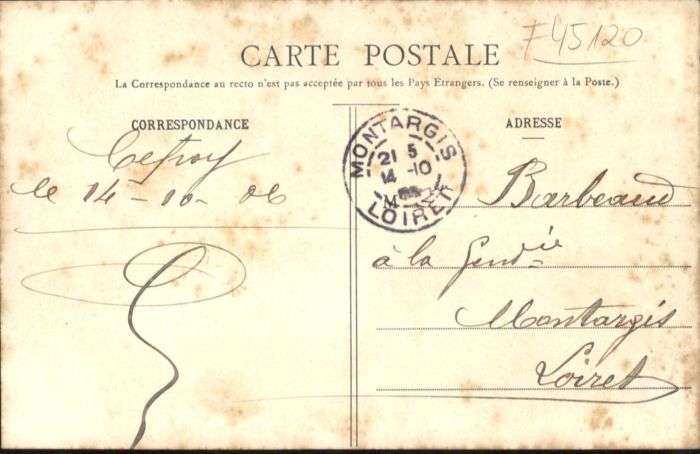 F45120
CARTE POSTALE
La Correspondance au recto n'est pas acceptée par tous les Pays Étrangers. (Se renseigner à la Poste.)
CORRESPONDANCE
le 14-10-06
MONTARGIS
21 5
14 -10
LOIRET
ADRESSE
Barbeaud
à la Gendrie
Montargis
Loiret